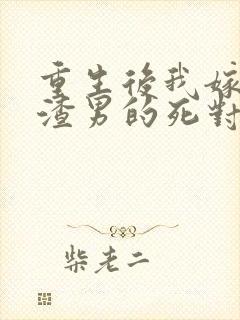 重生後我嫁
渣男的死對
柴老二